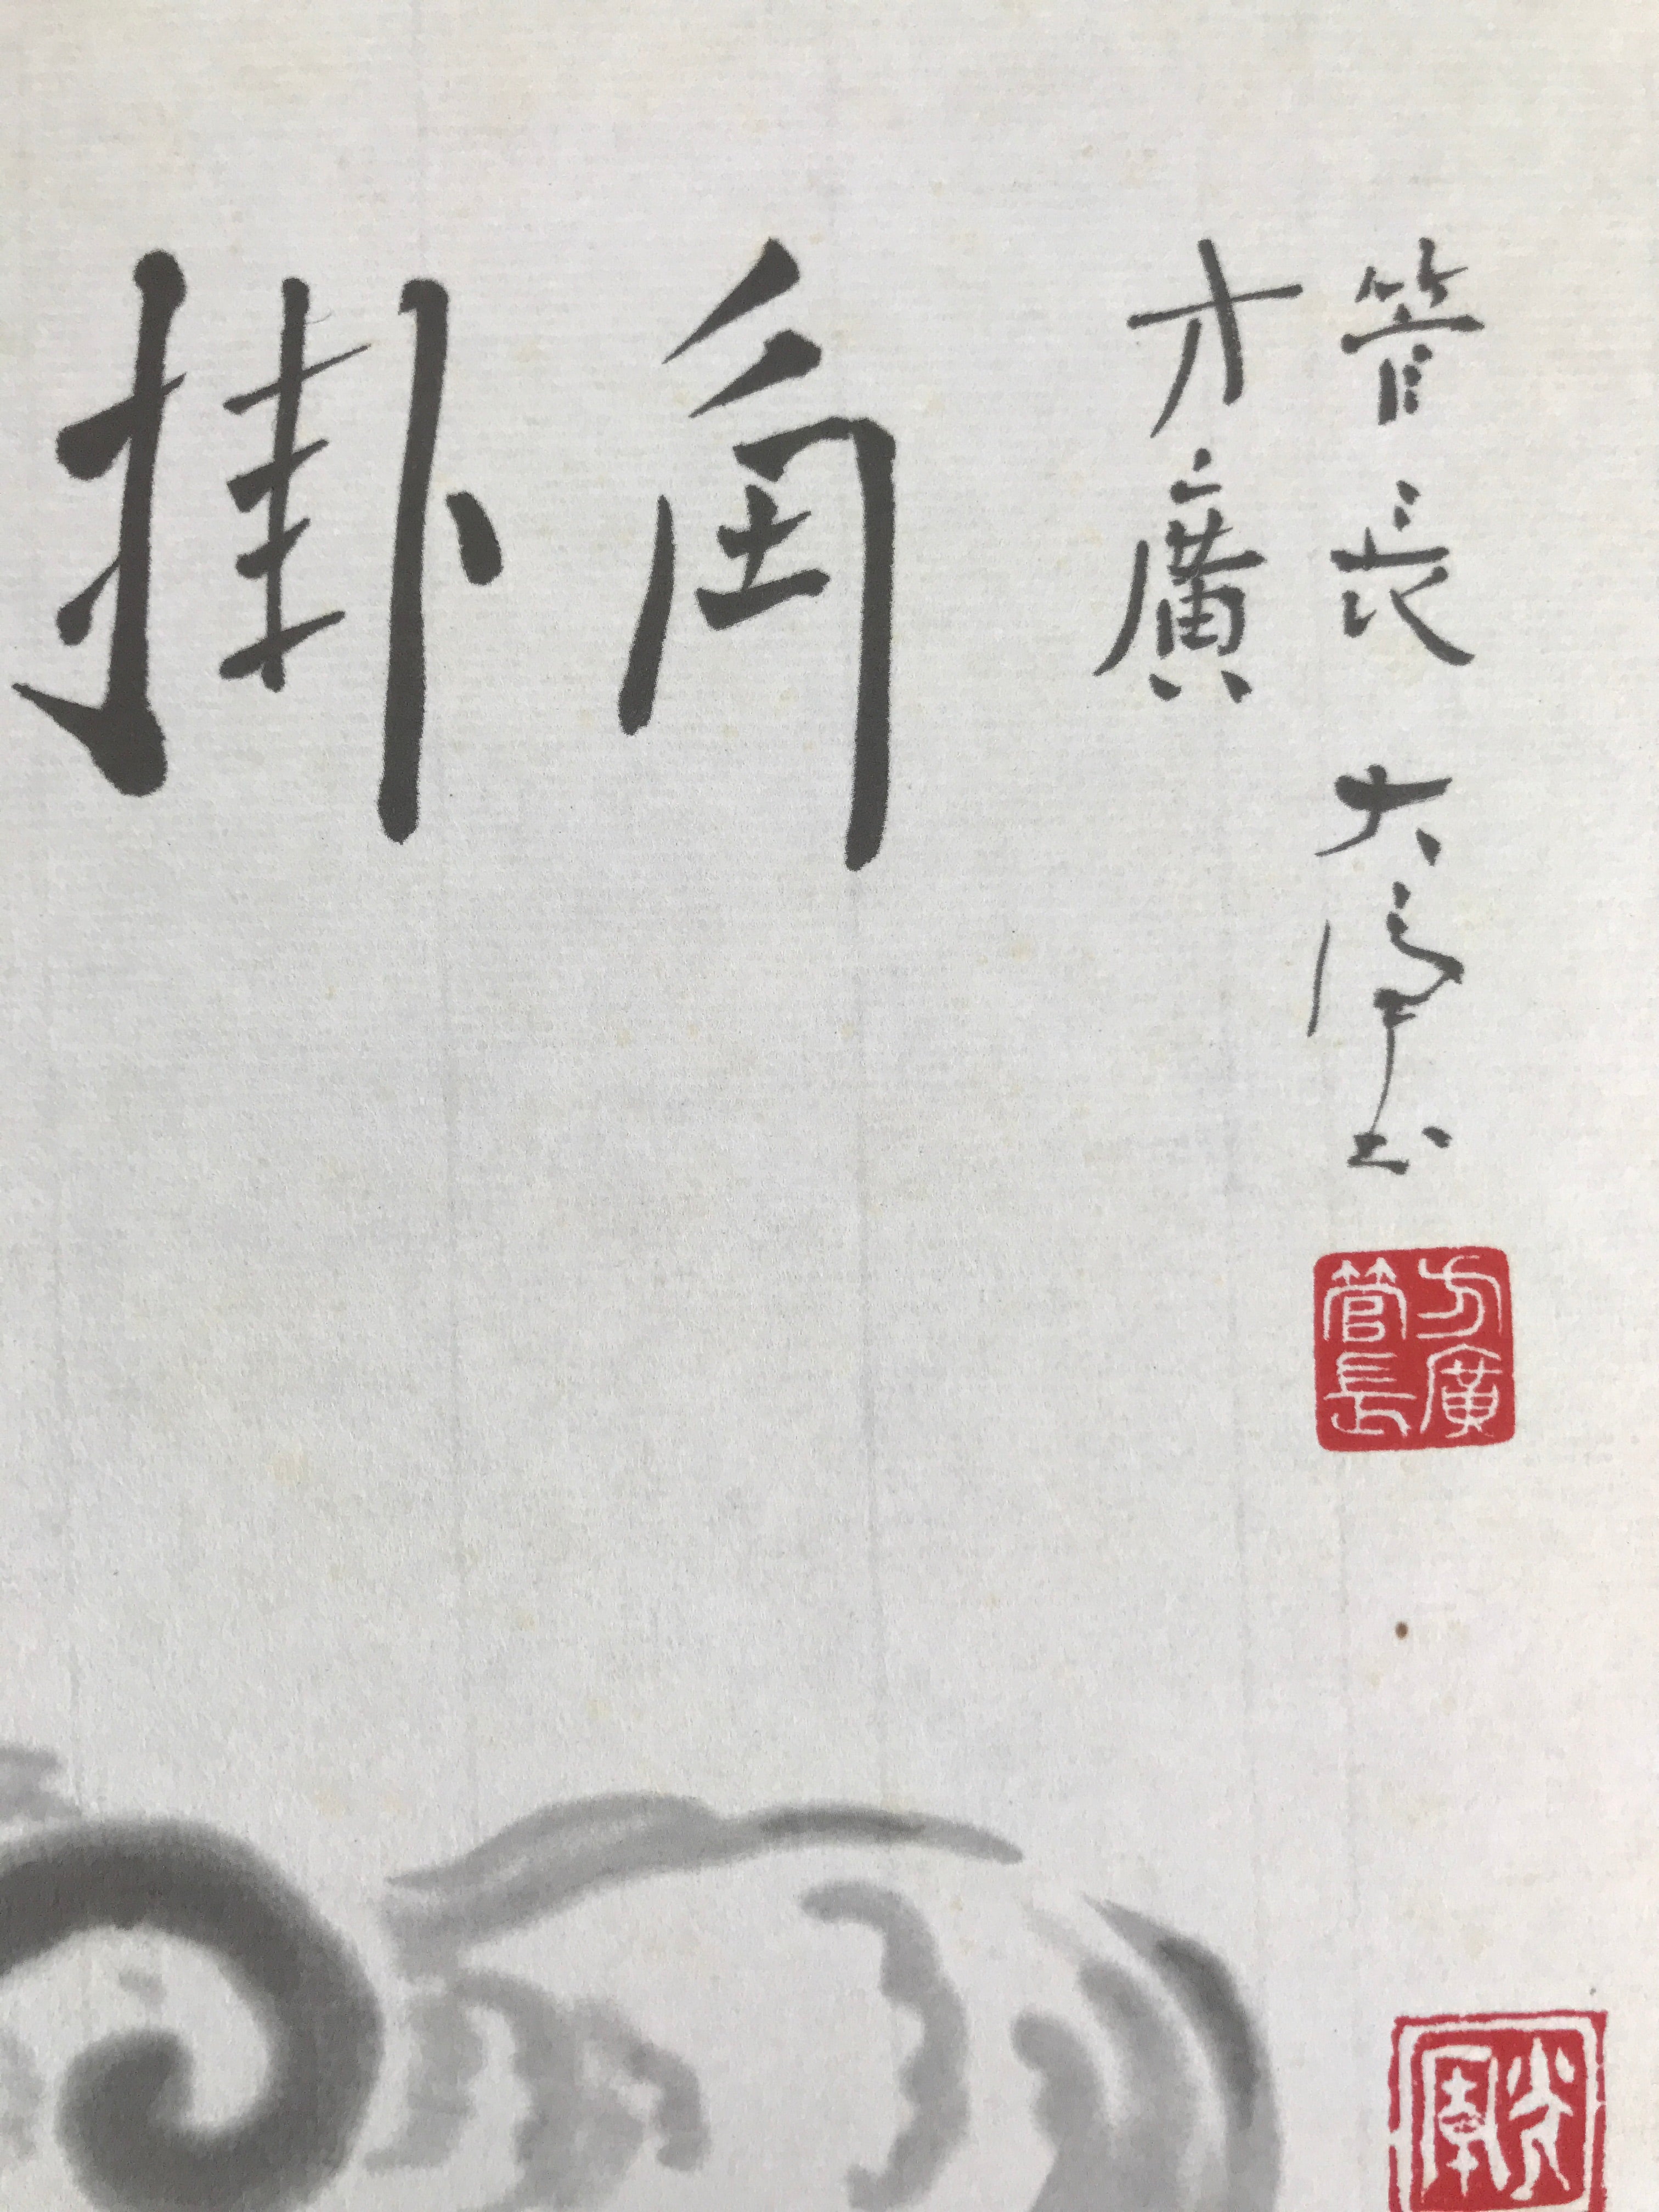 掛角
方廣
管長 大
方廣
管長